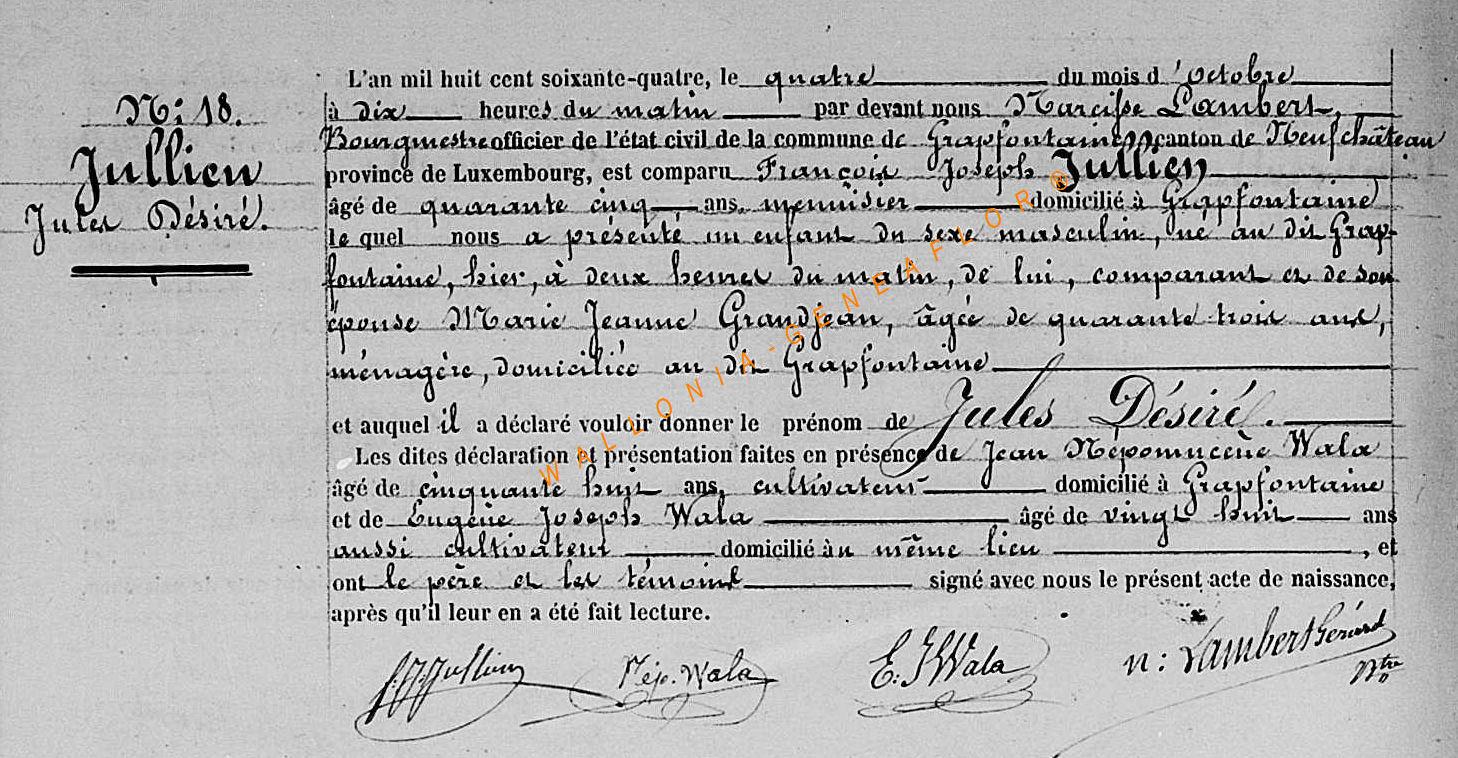 N: 18.
Jullien
Jules Désiré.
L'an mil huit cent soixante-quatre, le quatre du mois d'octobre
à dix heures du matin par devant nous Narcisse Lambert,
Bourgmestre officier de l'état civil de la commune de Grapfontaine canton de Neufchâteau
province de Luxembourg, est comparu François Joseph Jullien
âgé de quarante cinq ans, menuisier domicilié à Grapfontaine
le quel nous a présenté un enfant du sexe masculin, né au dit Grap-
fontaine, hier, à deux heures du matin, de lui, comparant et de son
épouse Marie Jeanne Grandjean, âgée de quarante trois ans,
ménagère, domiciliée au dit Grapfontaine
et auquel il a déclaré vouloir donner le prénom de Jules Désiré.
Les dites déclaration et présentation faites en présence de Jean Népomucène Wala
âgé de cinquante huit ans, cultivateur domicilié à Grapfontaine
et de Eugène Joseph Wala âgé de vingt huit ans
aussi cultivateur domicilié àu même lieu, et
ont le père et les témoins signé avec nous le présent acte de naissance,
après qu'il leur en a été fait lecture.
f.J. Jullien Nép. Wala E: J Wala n: Lambert Gérard
Btre
WALLONIA-GENEAFLOR®